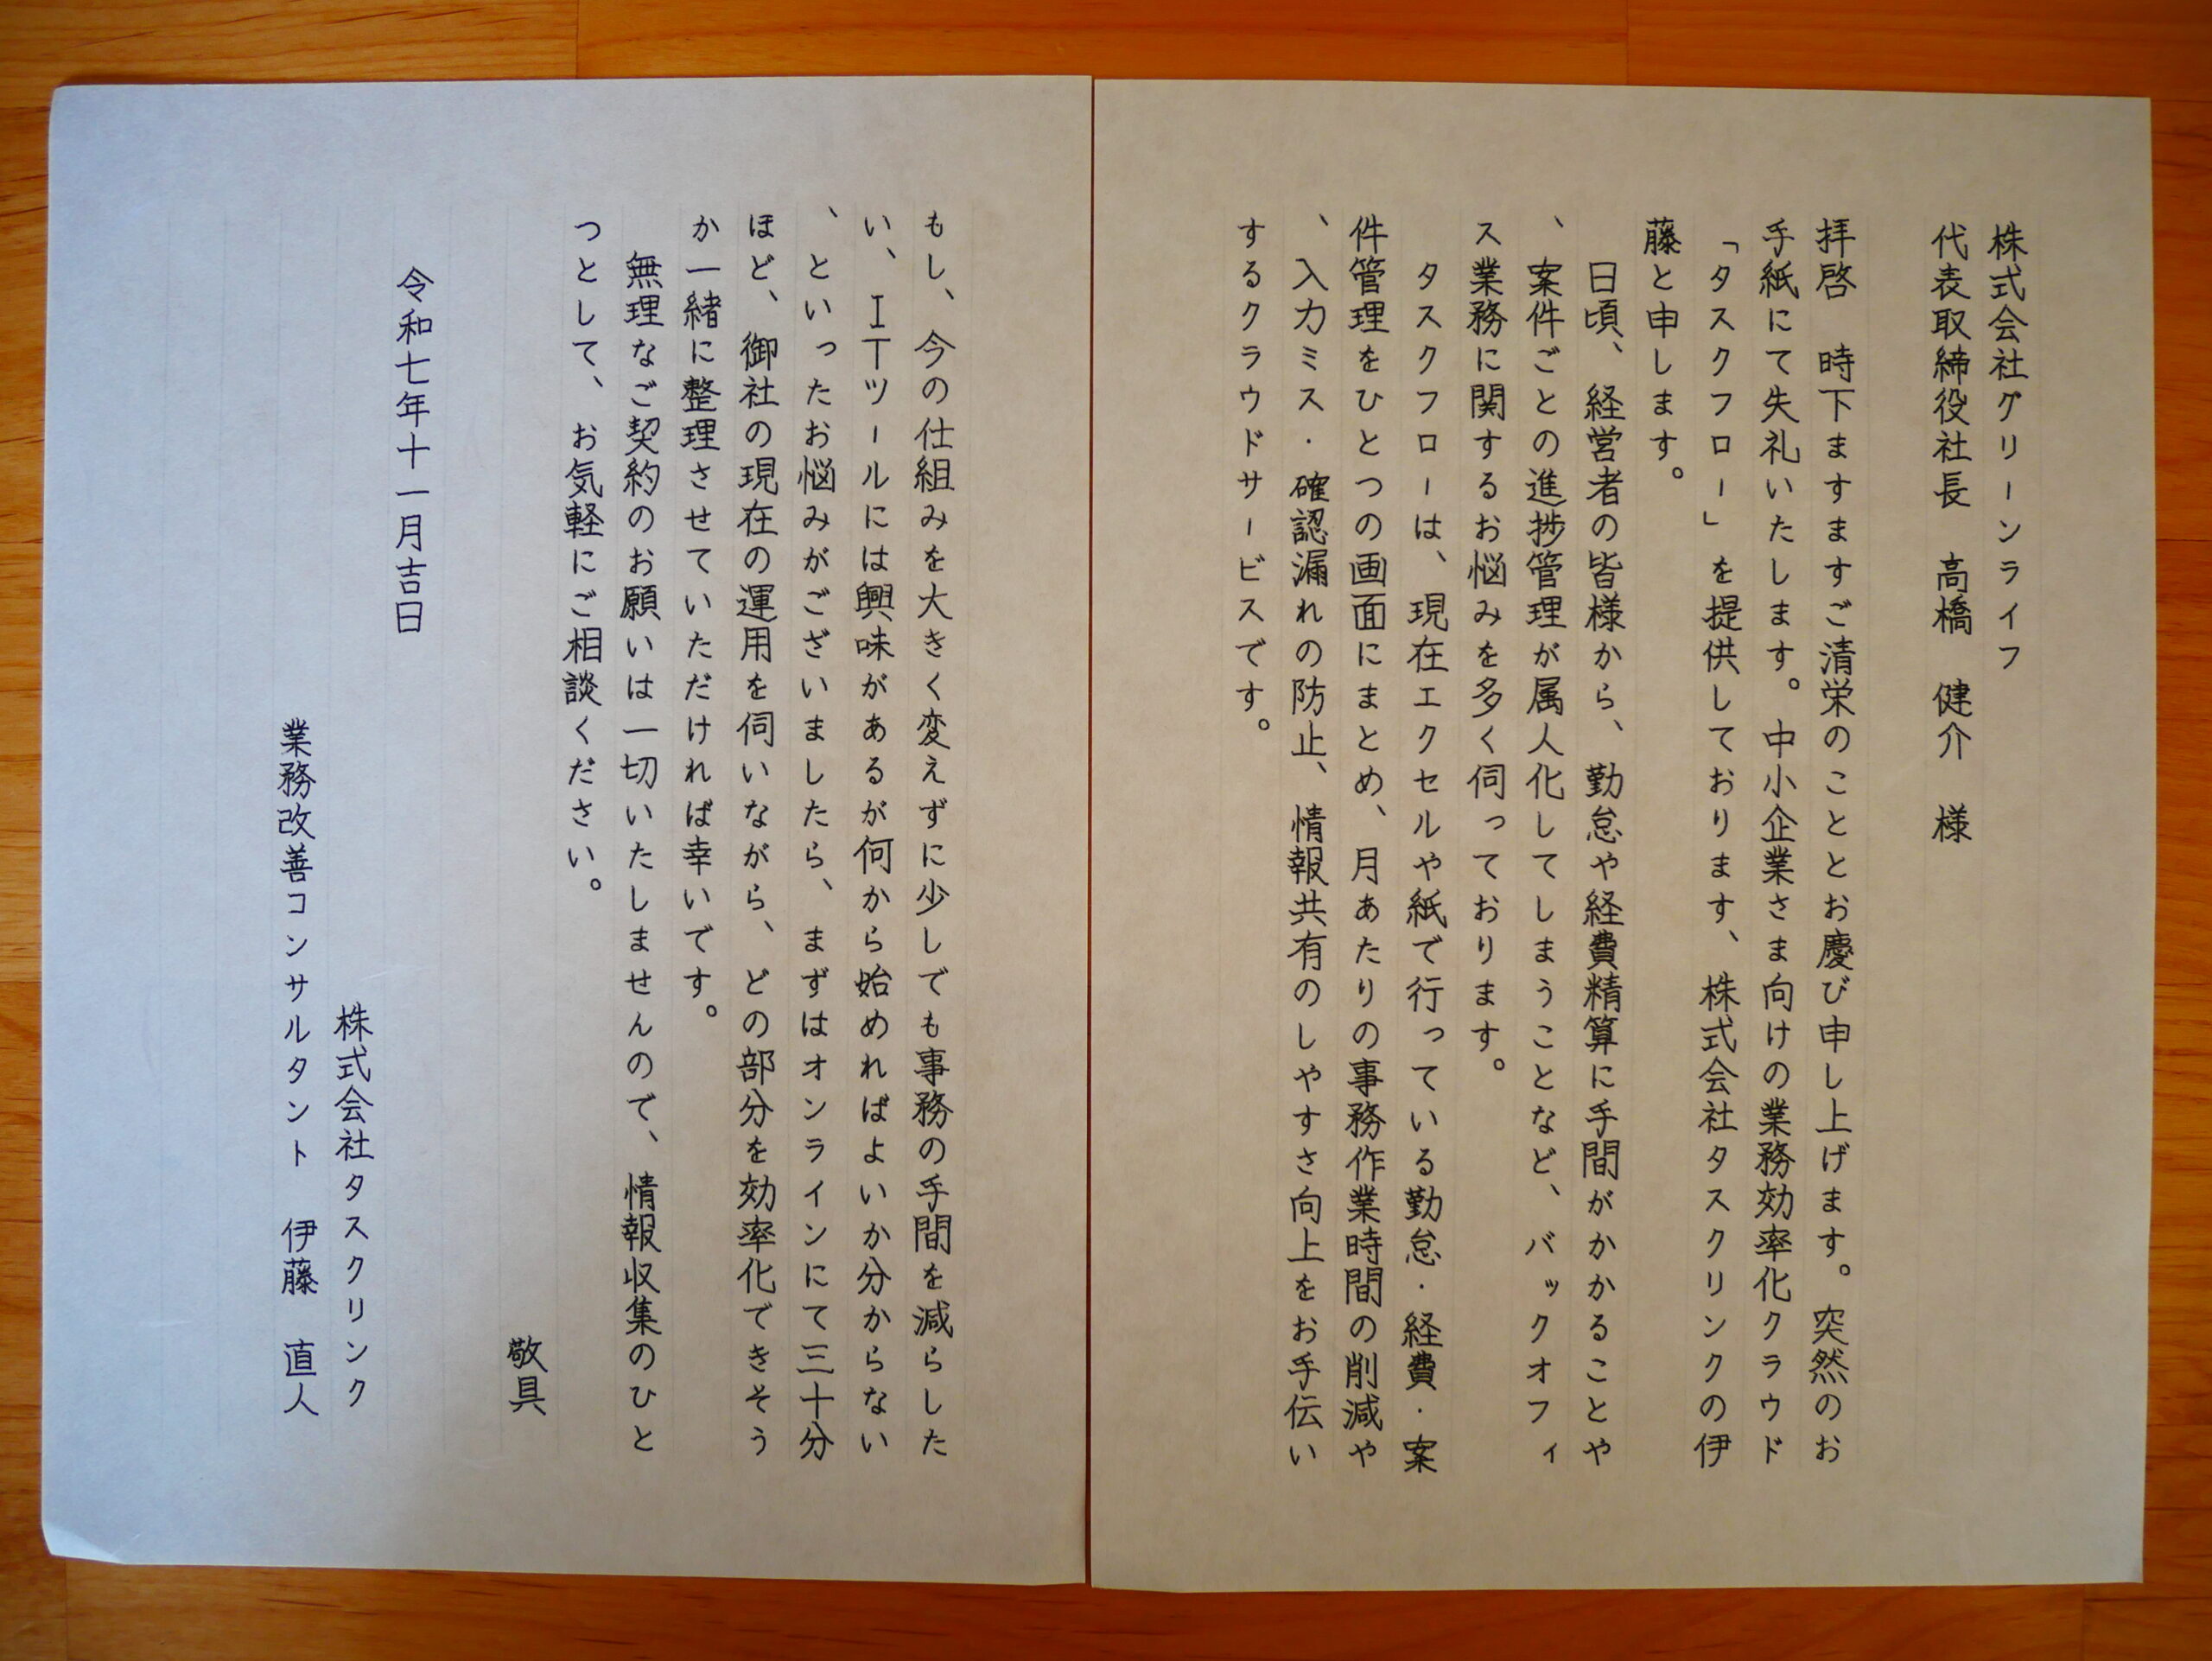 株式会社グリーンライフ
代表取締役社長　高橋　健介　様
拝啓　時下ますますご清栄のこととお慶び申し上げます。突然のお
手紙にて失礼いたします。中小企業さま向けの業務効率化クラウド
「タスクフロー」を提供しております、株式会社タスクリンクの伊
藤と申します。
　日頃、経営者の皆様から、勤怠や経費精算に手間がかかることや
、案件ごとの進捗管理が属人化してしまうことなど、バックオフィ
ス業務に関するお悩みを多く伺っております。
　タスクフローは、現在エクセルや紙で行っている勤怠・経費・案
件管理をひとつの画面にまとめ、月あたりの事務作業時間の削減や
、入力ミス・確認漏れの防止、情報共有のしやすさ向上をお手伝い
するクラウドサービスです。
もし、今の仕組みを大きく変えずに少しでも事務の手間を減らした
い、ＩＴツールには興味があるが何から始めればよいか分からない
、といったお悩みがございましたら、まずはオンラインにて三十分
ほど、御社の現在の運用を伺いながら、どの部分を効率化できそう
か一緒に整理させていただければ幸いです。
　無理なご契約のお願いは一切いたしませんので、情報収集のひと
つとして、お気軽にご相談ください。
敬具
令和七年十一月吉日
株式会社タスクリンク
業務改善コンサルタント　伊藤　直人